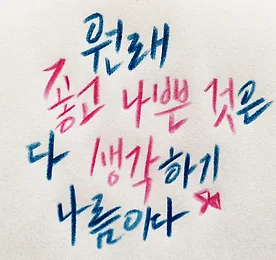 원래
좋고 나쁜 것은
다 생각하기
나름이다